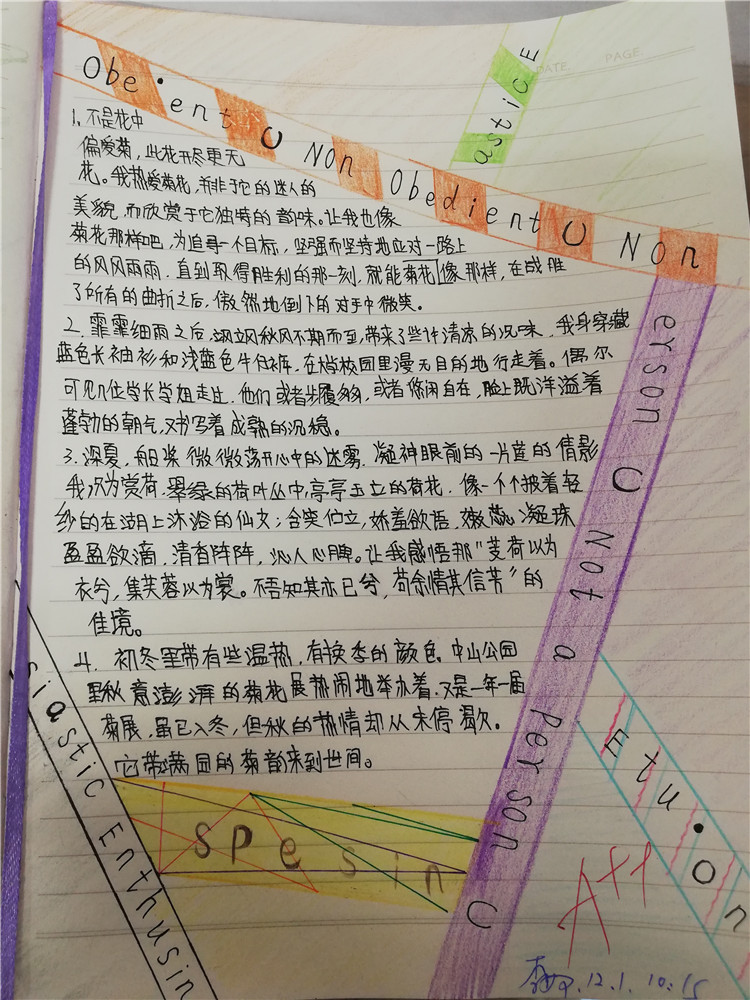 DATE PAGE
Obe•ient U Non Obedient U Non
asticE
1. 不是花中
偏爱菊，此花开尽更无
花。我热爱菊花，并非于它的迷人的
美貌，而欣赏于它独特的韵味。让我也像
菊花那样吧，为追寻一个目标，坚强而坚持地应对一路上
的风风雨雨，直到取得胜利的那一刻，就能菊花像那样，在战胜
了所有的曲折之后，傲然地倒下的对手中微笑。
2. 霏霏细雨之后，飒飒秋风不期而至，带来了些许清凉的况味，我身穿藏
蓝色长袖衫和浅蓝色牛仔裤，在学校园里漫无目的地行走着。偶尔
可见几位学长学姐走出，他们或者步履匆匆，或者悠闲自在，脸上既洋溢着
蓬勃的朝气，又书写着成熟的沉稳。
3. 深夏，船桨微微荡开心中的迷雾，凝神眼前的一片莲的倩影
我沉为赏荷，翠绿的荷叶丛中，亭亭玉立的荷花，像一个个披着轻
纱的在湖上沐浴的仙女；含笑伫立，娇羞欲语，嫩蕊凝珠
盈盈欲滴，清香阵阵，沁人心脾。让我感悟那“芰荷以为
衣兮，集芙蓉以为裳。不吾知其亦已兮，苟余情其信芳”的
佳境。
4. 初冬里带有些温热，有换季的颜色，中山公园
里秋意澎湃的菊花展热闹地举办着，又是一年一届
菊展，虽已入冬，但秋的热情却从未停歇。
它带满园的菊韵来到世间。
erson U Not a person U
siastic Enthusin
spesin
Etu•on
A++
12.1. 10:15